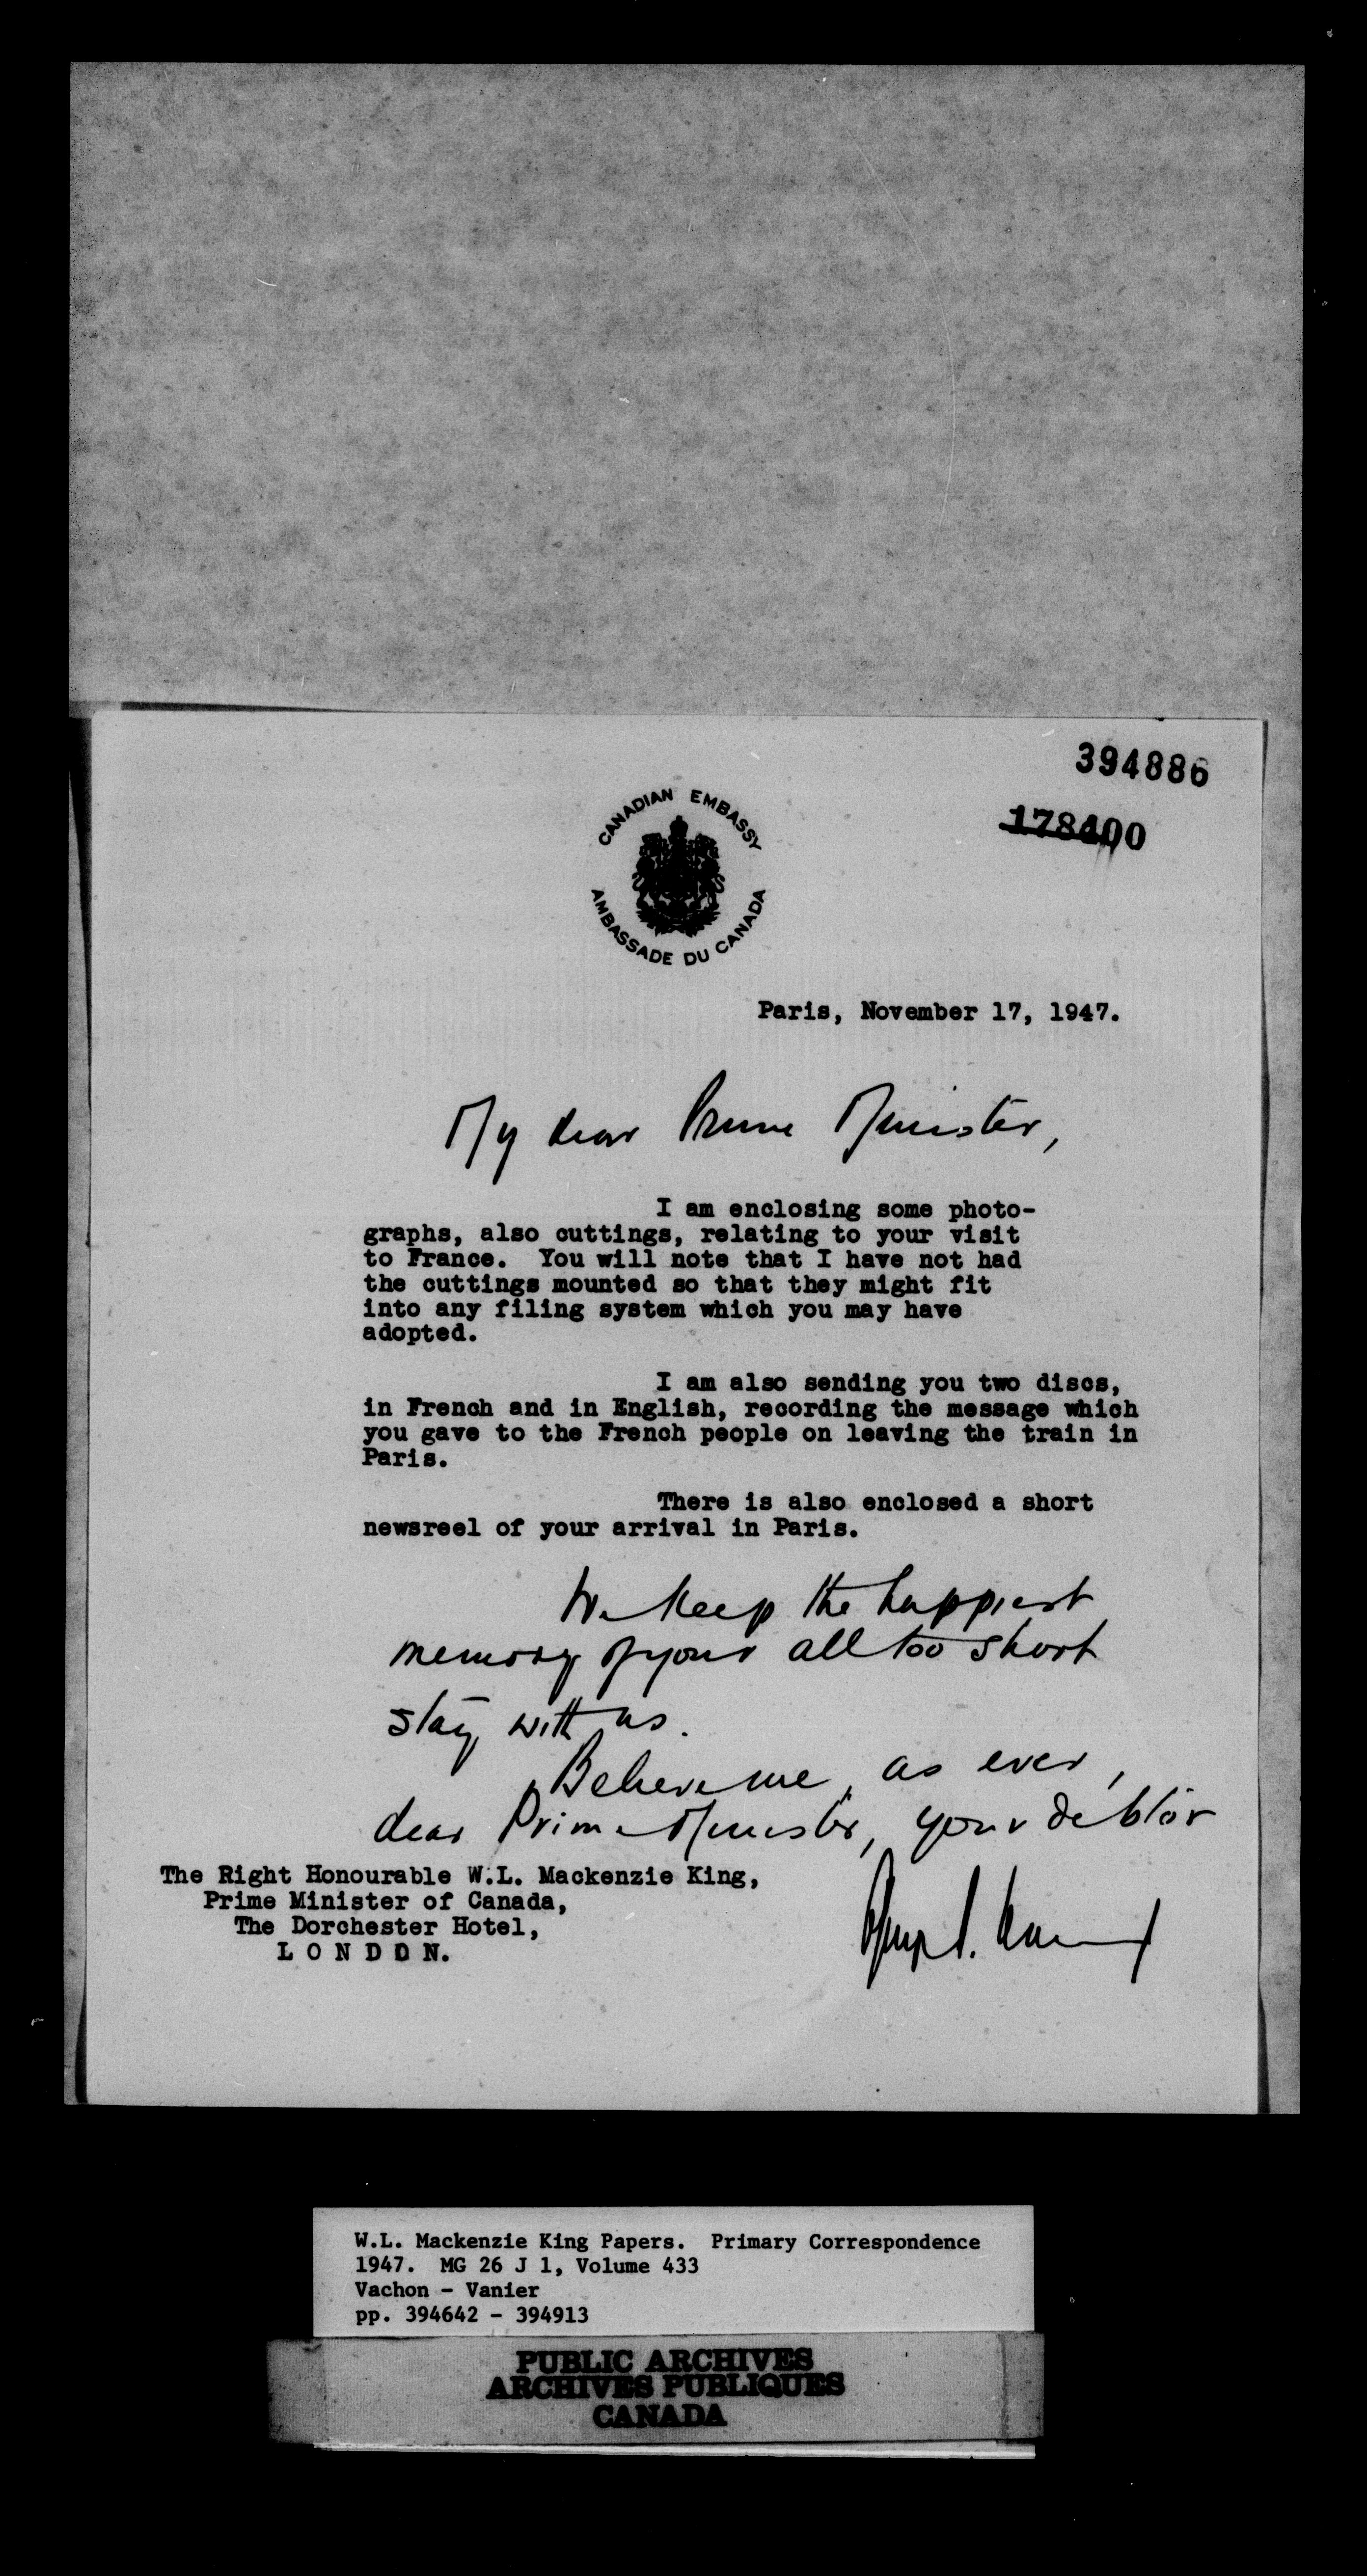 394886
178400
CANADIAN EMBASSY
AMBASSADE DU CANADA
Paris, November 17, 1947.
My dear Prime Minister,
I am enclosing some photo-
graphs, also cuttings, relating to your visit
to France. You will note that I have not had
the cuttings mounted so that they might fit
into any filing system which you may have
adopted.
I am also sending you two discs,
in French and in English, recording the message which
you gave to the French people on leaving the train in
Paris.
There is also enclosed a short
newsreel of your arrival in Paris.
We keep the happiest
memory of your all too short
stay with us.
Believe me, as ever,
dear Prime Minister, your debtor
The Right Honourable W.L. Mackenzie King,
Prime Minister of Canada,
The Dorchester Hotel,
L O N D O N.
W.L. Mackenzie King Papers. Primary Correspondence
1947. MG 26 J 1, Volume 433
Vachon - Vanier
pp. 394642 - 394913
PUBLIC ARCHIVES
ARCHIVES PUBLIQUES
CANADA